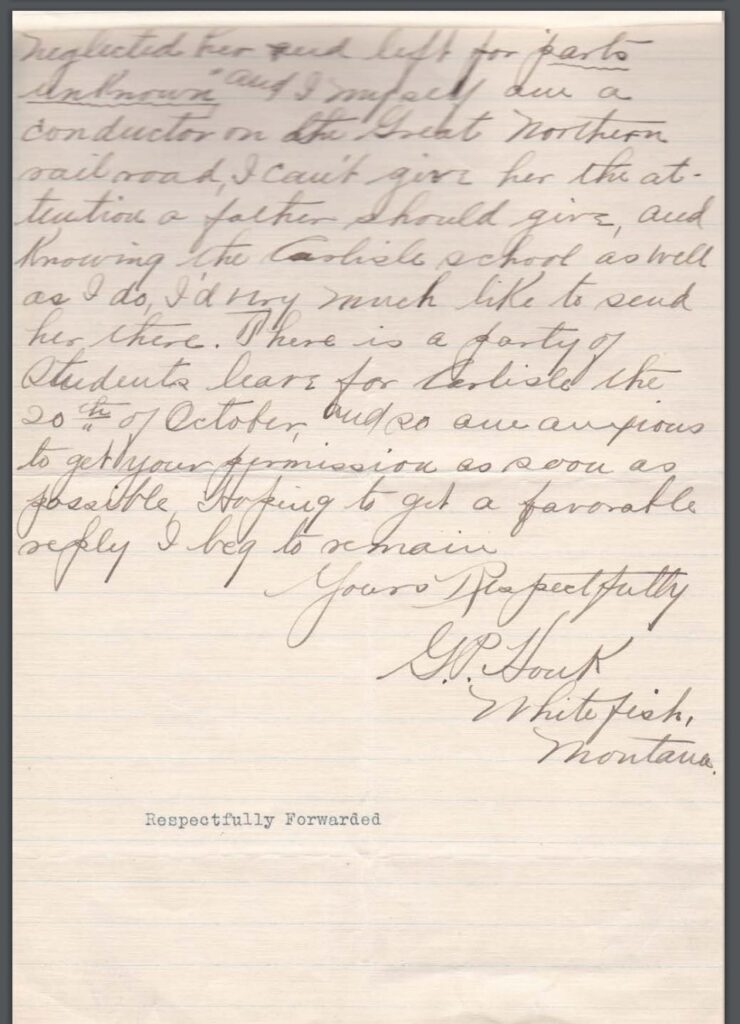 neglected her and left for "parts
unknown" and I myself am a
conductor on the Great Northern
railroad, I can't give her the at-
tention a father should give, and
Knowing the Carlisle school as well
as I do, I'd very much like to send
her there. There is a party of
students leave for Carlisle the
20th of October, and so am anxious
to get your permission as soon as
possible, Hoping to get a favorable
reply I beg to remain
Yours Respectfully
G.P. Houk
Whitefish,
Montana.
Respectfully Forwarded